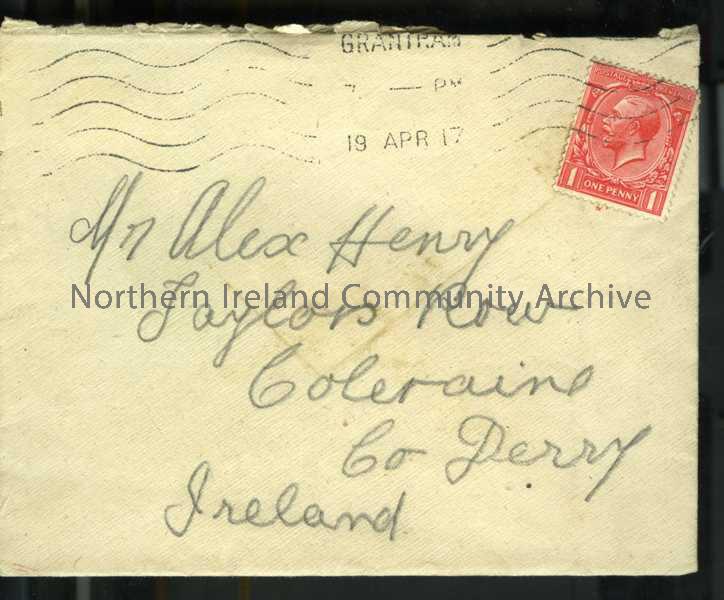 GRANTHAM
7 — PM
19 APR 17
POSTAGE REVENUE
1 ONE PENNY 1
Mr Alex Henry
Northern Ireland Community Archive
Taylors Row
Coleraine
Co Derry
Ireland